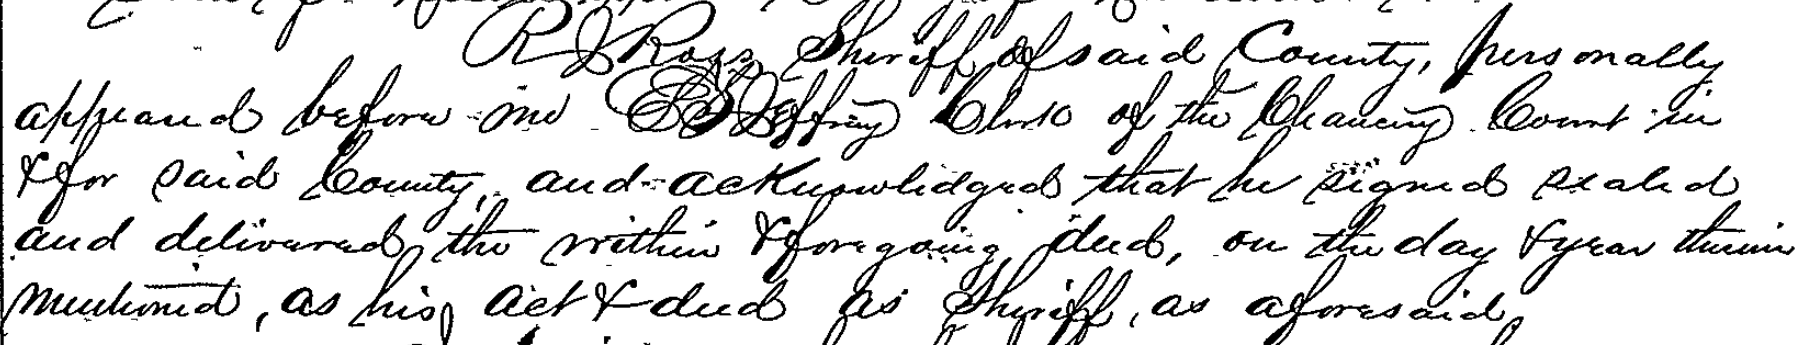 R J Ross Sheriff of said County, personally
appeared before me Jeffrey Clerk of the Chancery Court in
& for said County, and acknowledged that he signed sealed
and delivered the within & foregoing deed, on the day & year therein
mentioned, as his act & deed as Sheriff, as aforesaid